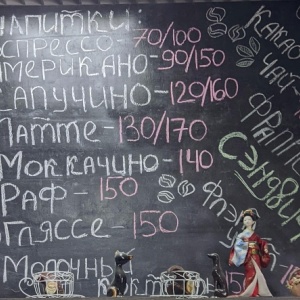 НАПИТКИ:
ЭСПРЕССО 70/100
АМЕРИКАНО-90/150
КАПУЧИНО-120/160
ЛАТТЕ-130/170
МОККАЧИНО-140
РАФ-150
ГЛЯССЕ-150
МОЛОЧНЫЙ
КОКТЕЙЛЬ-15
КАКАО
ЧАЙ-
ФРАППЕ
СЭНДВИ
ФЛЭТ